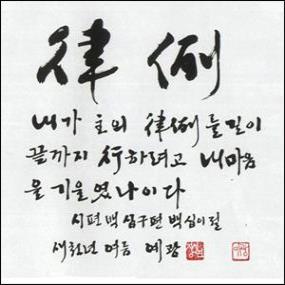 律例
내가 主의 律例를 길이
끝까지 行하려고 내 마음
을 기울였나이다
시편 백 십구편 백 십이절
새천년 여름 예광